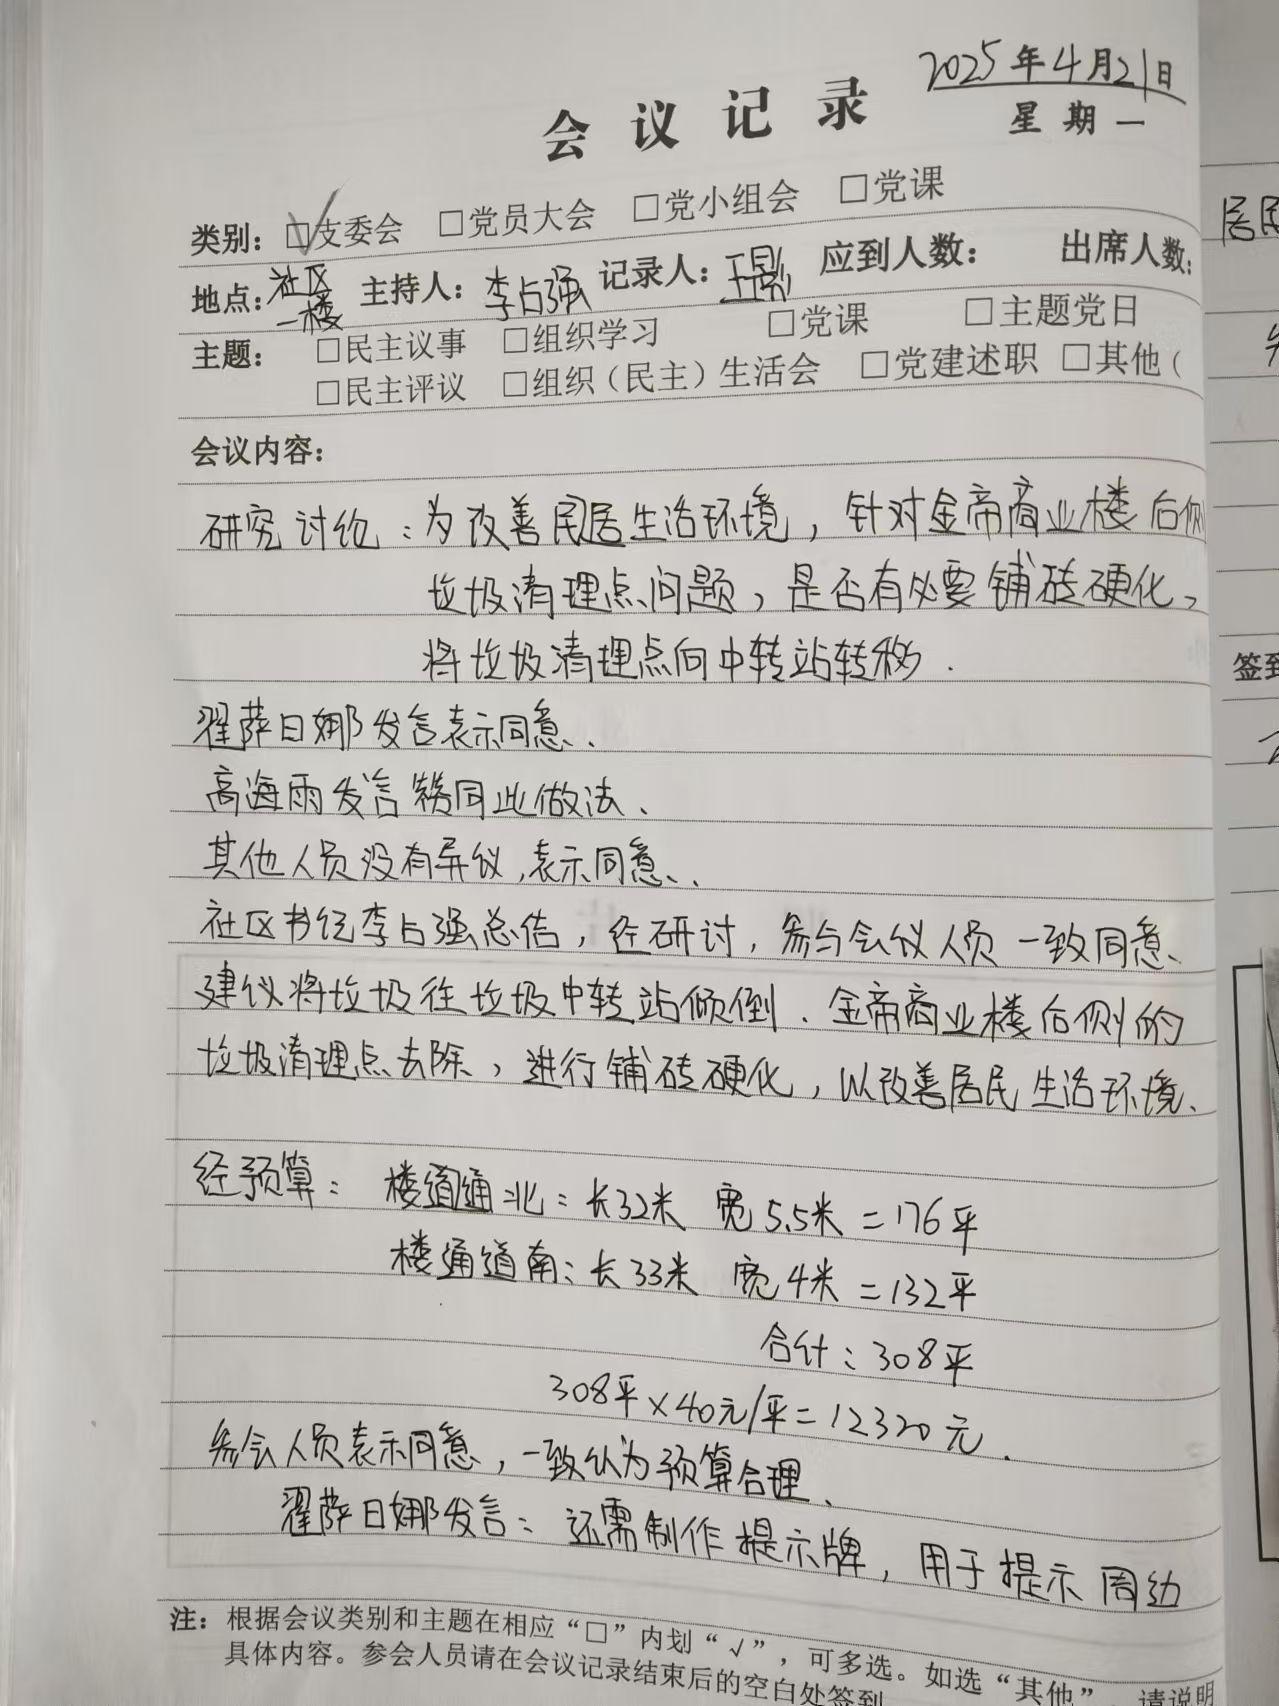 2025年4月21日
会议记录
星期一
类别：☑支委会 □党员大会 □党小组会 □党课
地点：社区一楼 主持人：李占强 记录人：王影 应到人数： 出席人数：
主题： □民主议事 □组织学习 □党课 □主题党日
□民主评议 □组织（民主）生活会 □党建述职 □其他（
会议内容：
研究讨论：为改善民居生活环境，针对金帝商业楼后侧
垃圾清理点问题，是否有必要铺砖硬化，
将垃圾清理点向中转站转移.
翟萨日娜发言表示同意、
高海雨发言赞同此做法、
其他人员没有异议,表示同意、
社区书记李占强总结，经研讨，参与会议人员一致同意、
建议将垃圾往垃圾中转站倾倒.金帝商业楼后侧的
垃圾清理点去除，进行铺砖硬化，以改善居民生活环境、
经预算：楼道通北：长32米 宽5.5米=176平
楼通道南：长33米 宽4米=132平
合计：308平
308平×40元/平=12320元.
参会人员表示同意，一致认为预算合理、
翟萨日娜发言：还需制作提示牌，用于提示周边
注：根据会议类别和主题在相应“□”内划“√”，可多选。如选“其他”，请说明
具体内容。参会人员请在会议记录结束后的空白处签到
居民
签到